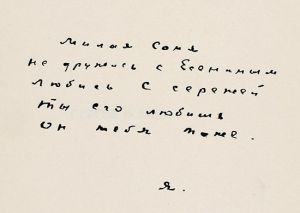 Милая Соня
не дружись с Есениным
Любись с сережей
Ты его любишь
он тебя тоже.
Я.